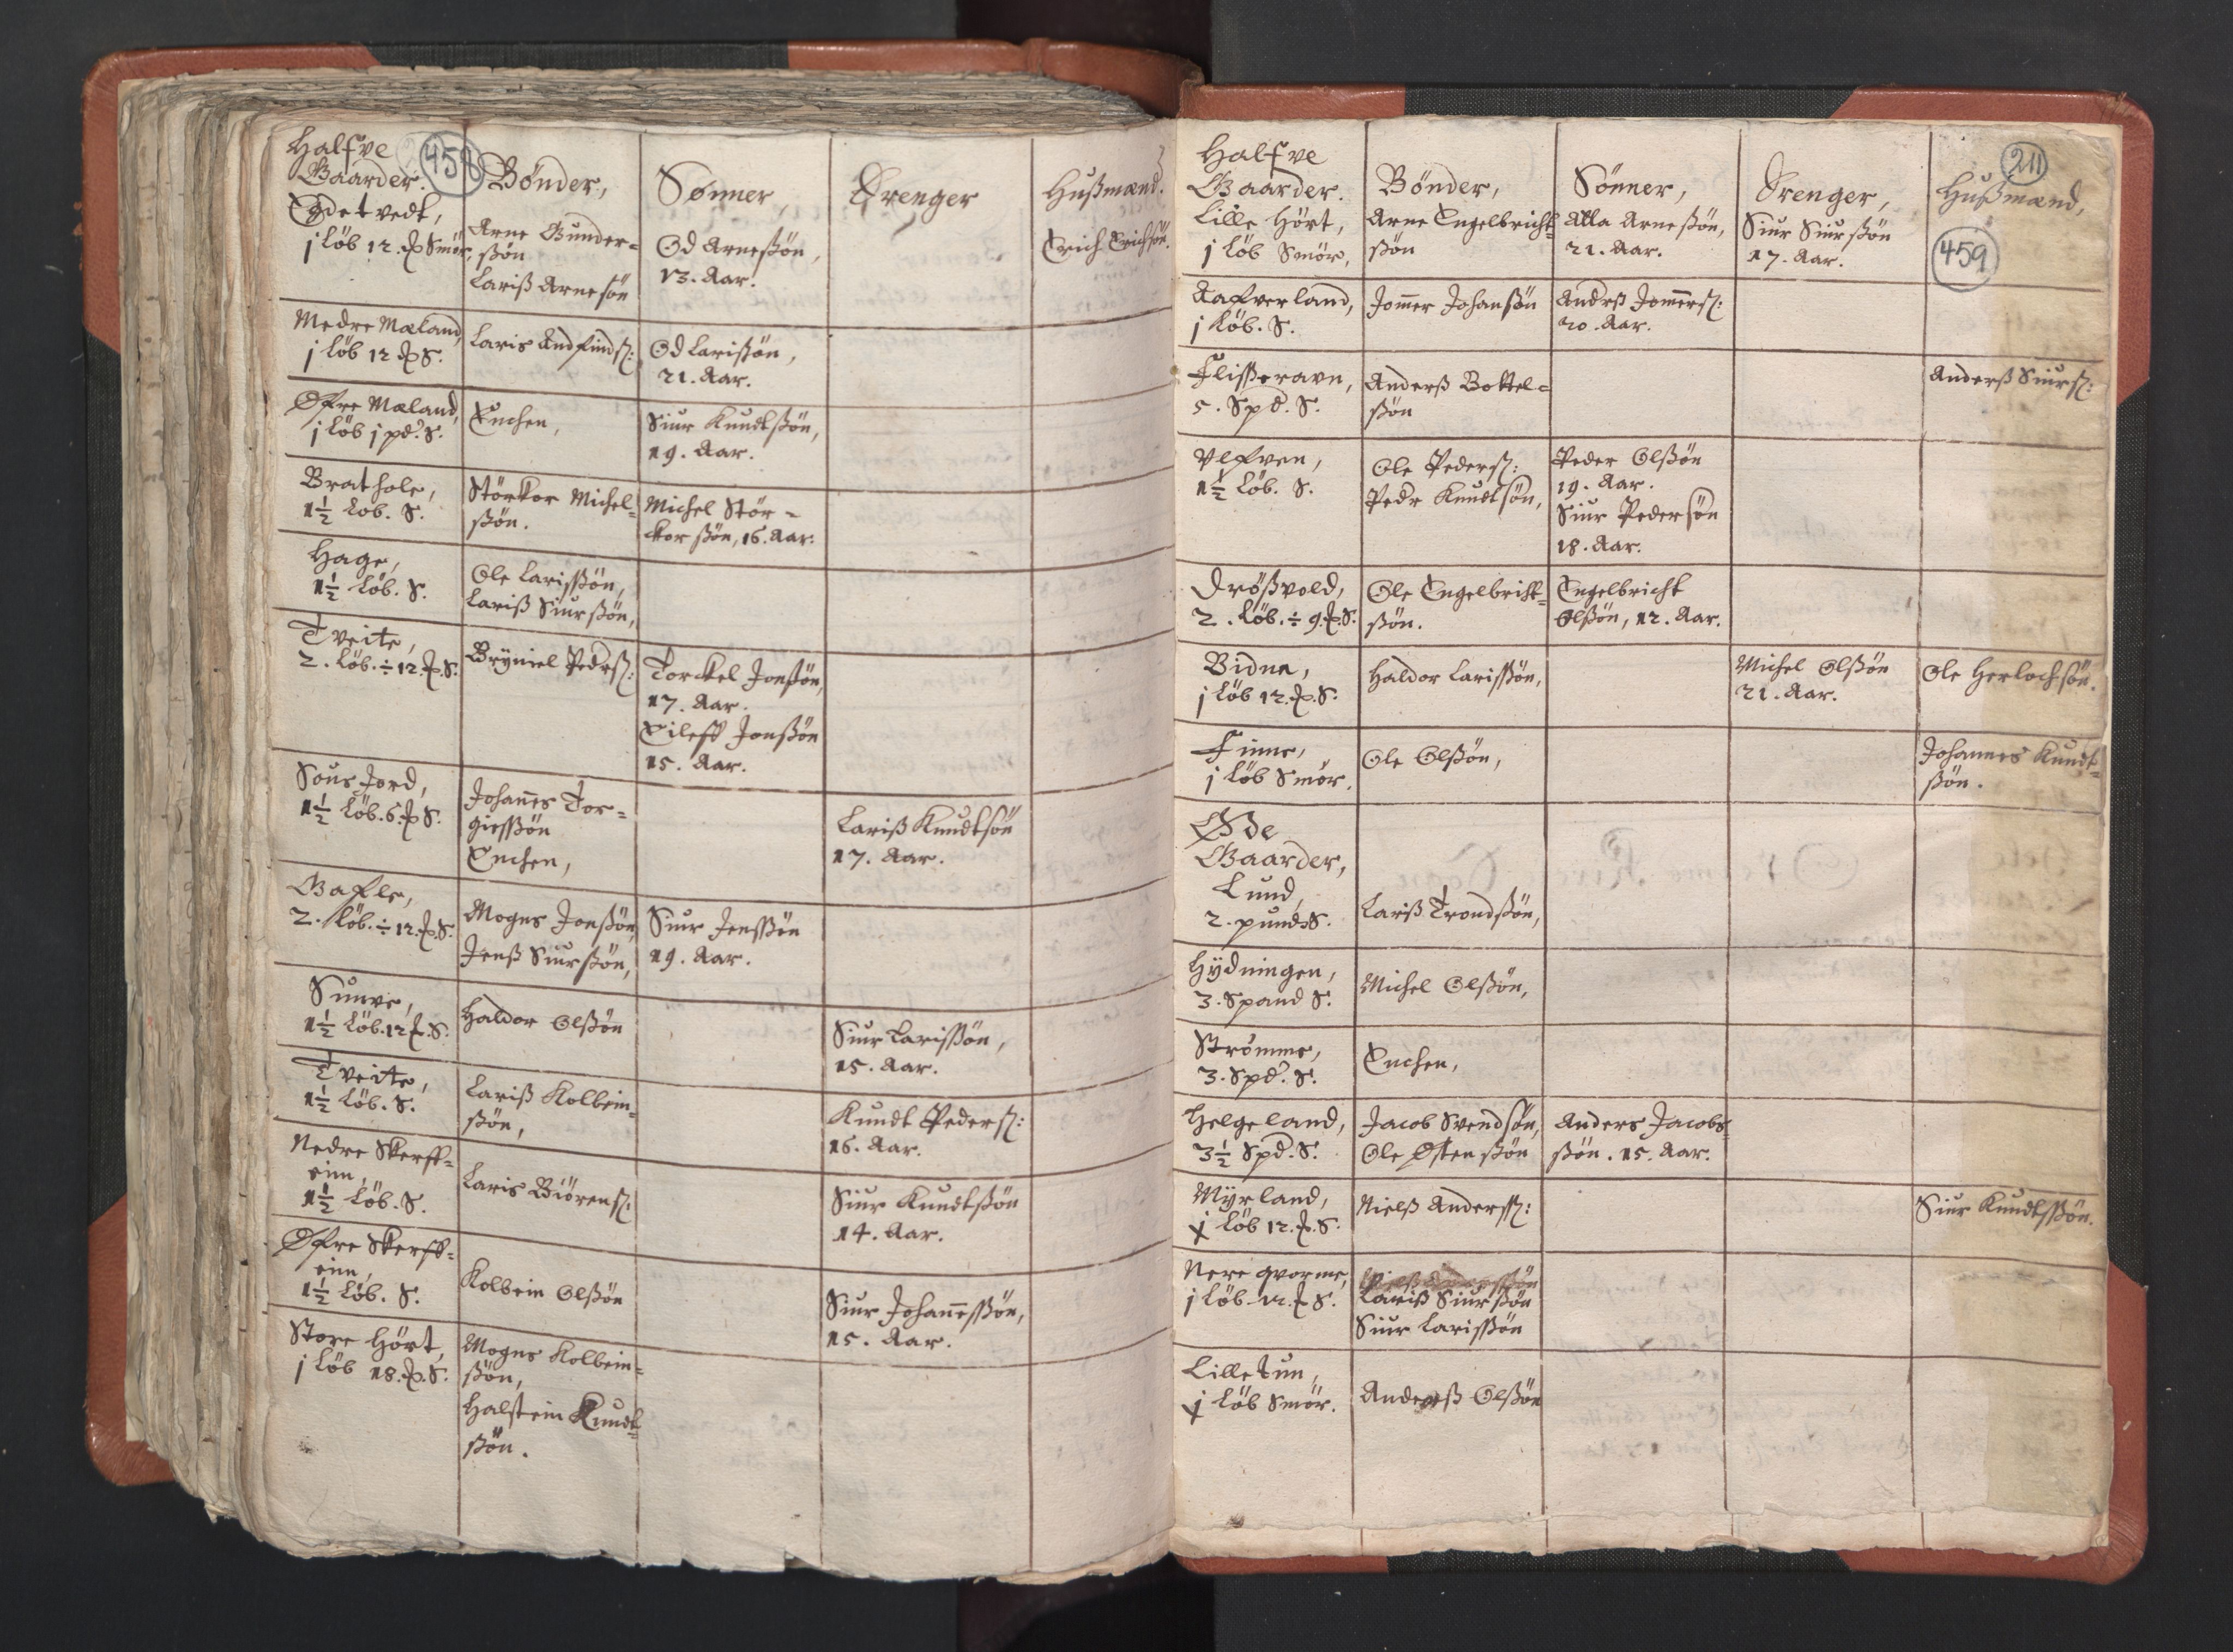 458
Halfve
Gaarder.
Bönder,
Sönner,
Drenger
Hußmænd.
Egdetvedt,
j löb 12. ℔ Smör,
Arne Gunder=
ßön
Lariß Arnesön
Od Arneßön,
13. Aar.
Erich Erichsön.
Nedre Mæland,
j löb 12 ℔ S.
Laris Andfinds:
Od Larißön,
21. Aar.
Öfre Mæland,
j löb j pd. S.
Enchen,
Siur Knudtßön,
19. Aar.
Brathole,
1½ Löb. S.
Störkor Michel=
ßön.
Michel Stör=
kor ßön, 16. Aar.
Hage,
1½ Löb. S.
Ole Larisßön,
Lariß Siurßön,
Tveite,
2. Löb. ÷ 12. ℔. S.
Brÿniel Peders:
Torckel Jonßön,
17. Aar.
Eileff Jonßön
15. Aar.
Sousjord,
1½ Löb. 6. ℔ S.
Johanes Tor=
giesßön
Enchen,
Lariß Knudtsön
17. Aar.
Gafle,
2. Löb. ÷ 12. ℔. S.
Mogns Jonßön,
Jenß Siurßön,
Siur Jensßön
19. Aar.
Sunve,
1½ Löb. 12 ℔. S.
Haldor Olßön
Siur Larisßön,
15. Aar.
Tveite,
1½ Löb. S.
Lariß Kolbein=
ßön,
Knudt Peders:
16. Aar.
Nedre Skerff=
einn,
1½ Löb. S.
Laris Biörens:
Siur Knudtßön
14. Aar.
Öfre Skerff=
einn,
1½ Löb. S.
Kolbein Olßön
Siur Johannesßön,
15. Aar.
Store Hört,
j Löb 18. ℔. S.
Mogns Kolbein=
ßön,
Halstein Knudt=
ßön.
211
459
Halfve
Gaarder.
Bönder,
Sönner,
Drenger,
Hußmænd,
Lille Hört,
j Löb Smör,
Arne Engelbricht=
ßön
Atla Arneßön,
21. Aar.
Siur Siurßön
17. Aar.
Aafverland,
j Löb. S.
Jomer Johanßön
Anderß Jommers:
20. Aar.
Flisseravn,
5. Spd. S.
Anderß Bottel=
ßön
Anderß Siurs:
Vlfven,
1½ Löb. S.
Ole Peders:
Peder Knudtsön,
Peder Olßön
19. Aar.
Siur Pedersön
18. Aar.
Drößvold,
2. Löb. ÷ 9. ℔. S.
Ole Engelbricht=
ßön.
Engelbricht
Olßön, 12. Aar.
Bidne,
j Löb 12. ℔. S.
Haldor Larisßön,
Michel Olßön
21. Aar.
Ole Herlochsön.
Finne,
j Löb Smör.
Ole Olßön,
Johannes Knudt=
ßön.
Öde
Gaarder,
Lund,
2. pund S.
Lariß Trondßön,
Hÿdningen,
3. Spand S.
Michel Olßön,
Strömme,
3. Spd. S.
Enchen,
Helgeland,
3½ Spd. S.
Jacob Svendsön,
Ole Östensßön
Anders Jacobs
ßön. 15. Aar.
Mÿrland,
j Löb 12. ℔. S.
Nielß Anderss:
Siur Knudtsßön.
Nere qvorme,
j Löb. 12. ℔ S.
Lariß Siurßön
Siur Larisßön
Lilletun,
j Löb Smör.
Anderß Olßön